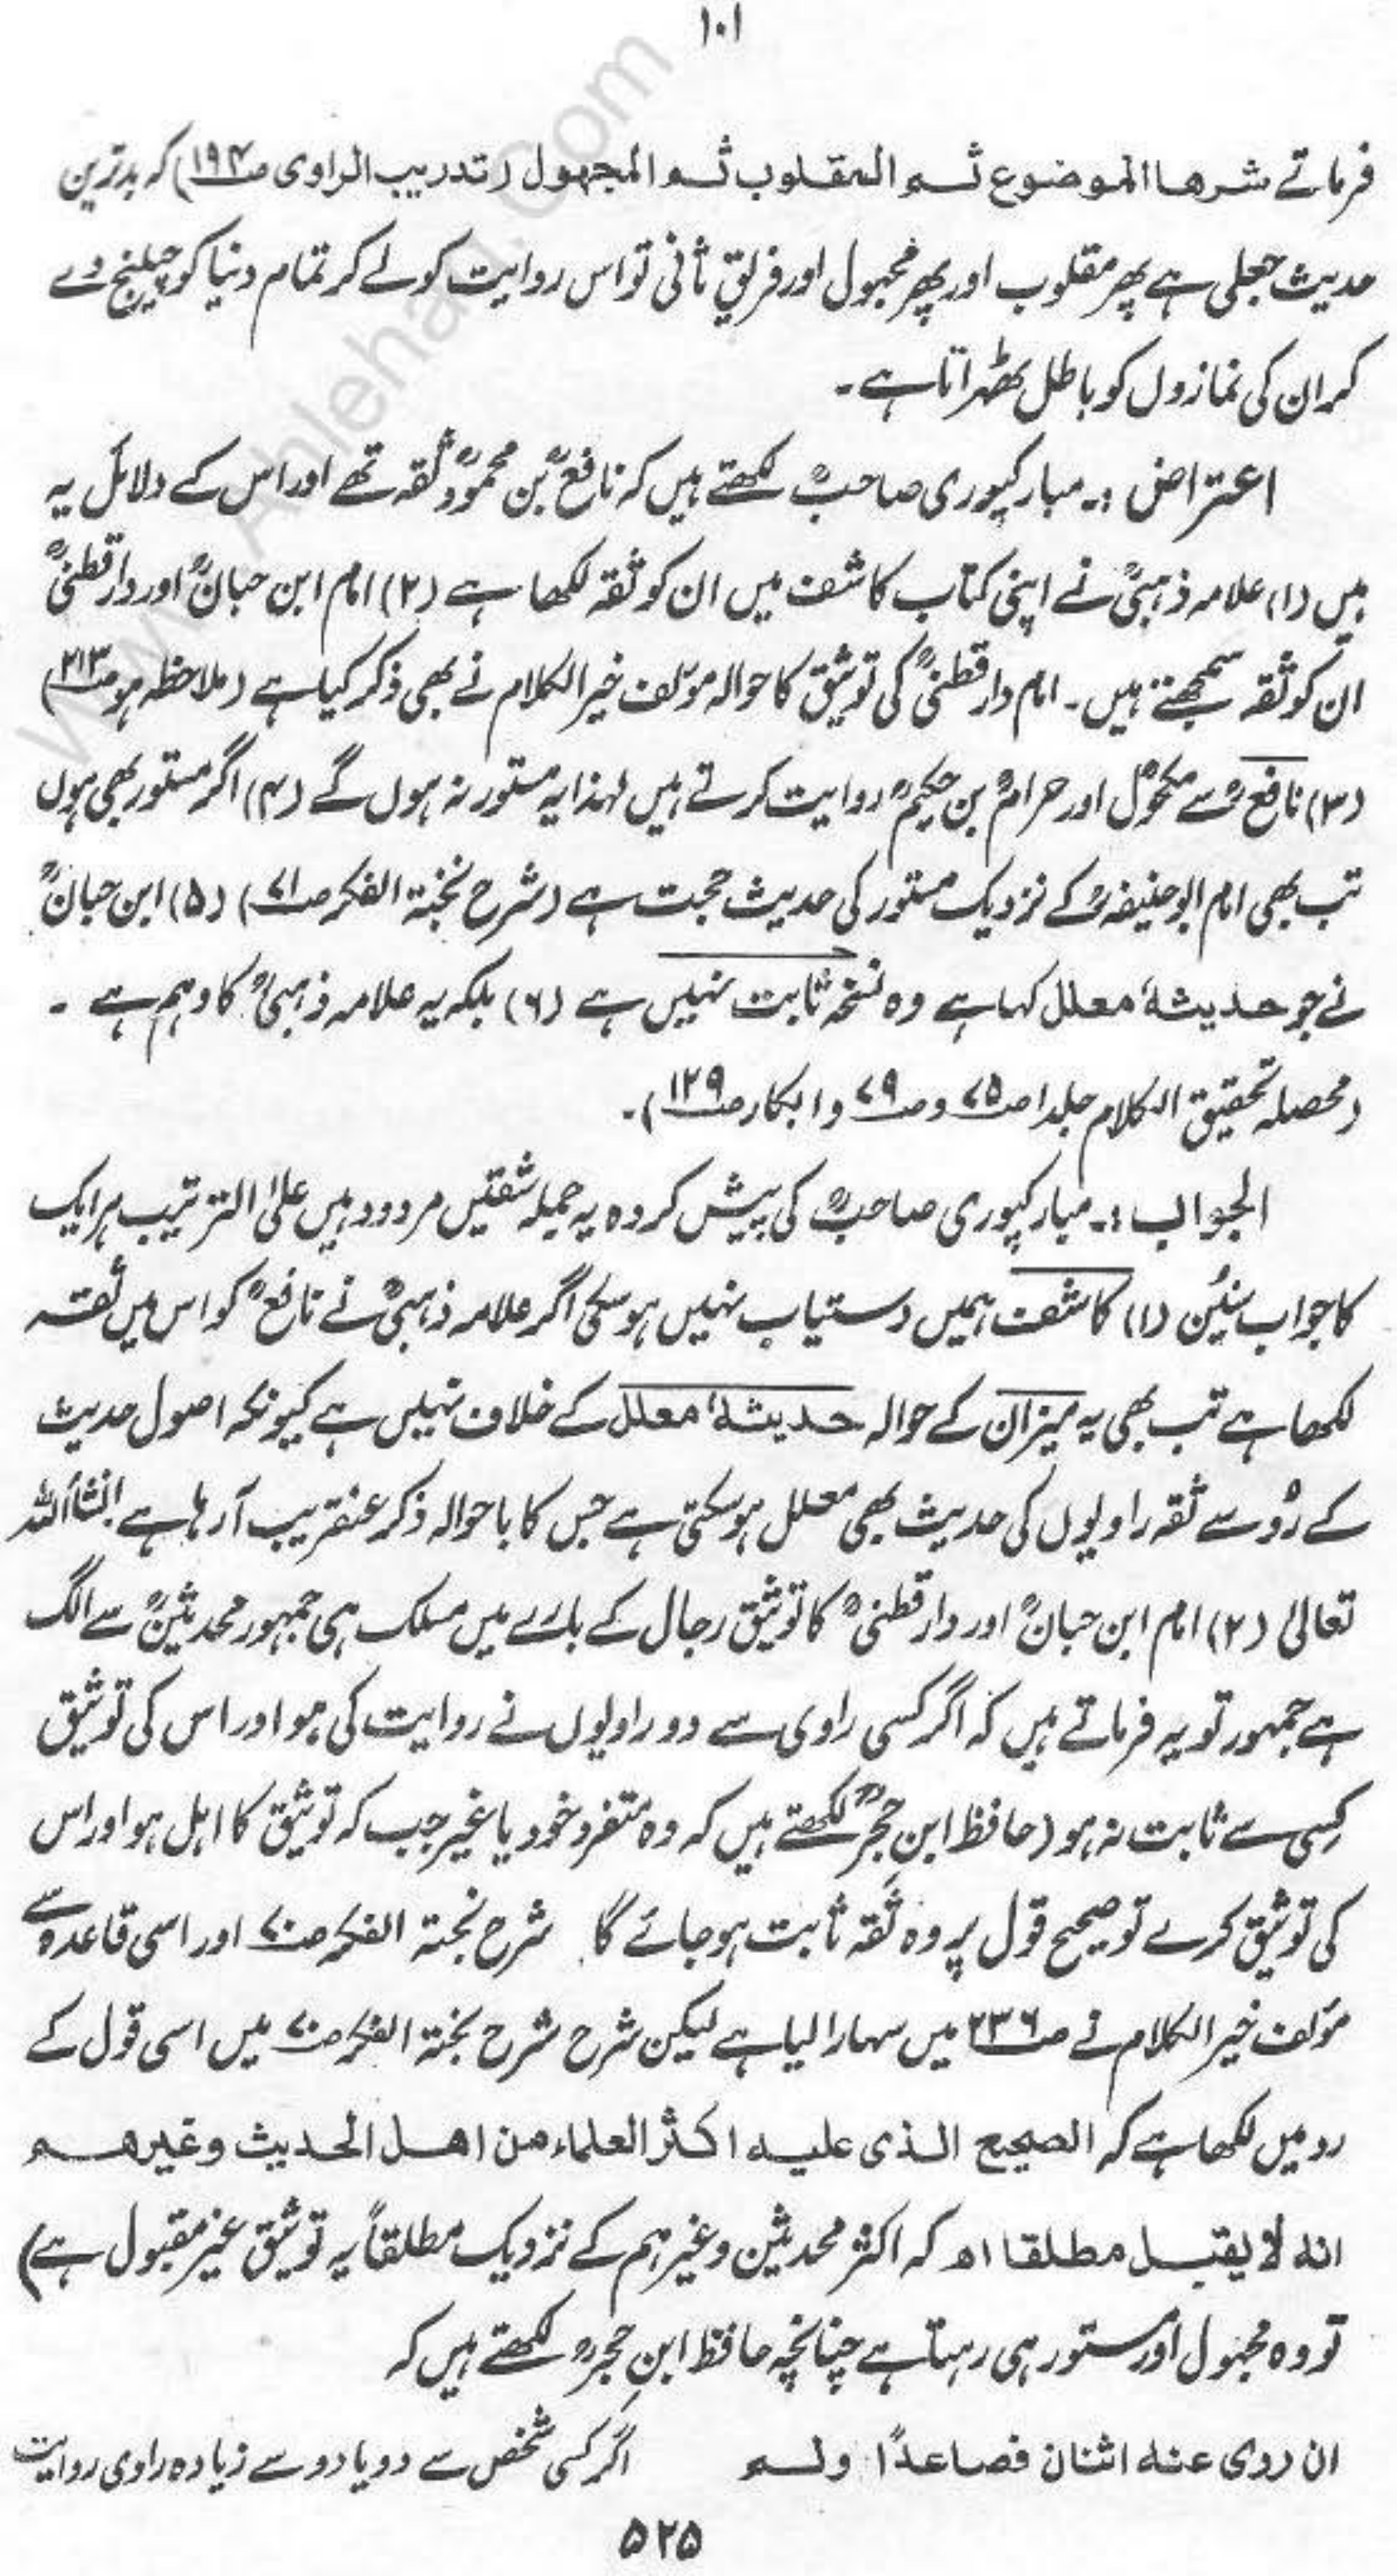 ۱۰۱
فرماتے شرھا الموضوع ثم المقلوب ثم المجهول (تدریب الراوی صـ۱۹۴) کہ بدترین
حدیث جعلی ہے پھر مقلوب اور پھر مجہول اور فریقِ ثانی تو اس روایت کو لے کر تمام دنیا کو چیلنج دے
کر ان کی نمازوں کو باطل ٹھہراتا ہے۔
اعتراض :۔ مبارکپوری صاحبؒ لکھتے ہیں کہ نافعؒ بن محمودؒ ثقہ تھے اور اس کے دلائل یہ
ہیں (۱) علامہ ذہبیؒ نے اپنی کتاب کاشف میں ان کو ثقہ لکھا ہے (۲) امام ابن حبانؒ اور دارقطنیؒ
ان کو ثقہ سمجھتے ہیں۔ امام دارقطنیؒ کی توثیق کا حوالہ مؤلف خیر الکلام نے بھی ذکر کیا ہے (ملاحظہ ہو صـ۲۱۳)
(۳) نافعؒ سے مکحولؒ اور حرامؒ بن حکیمؒ روایت کرتے ہیں لہٰذا یہ مستور نہ ہوں گے (۴) اگر مستور بھی ہوں
تب بھی امام ابوحنیفہؒ کے نزدیک مستور کی حدیث حجت ہے (شرح نخبۃ الفکر صـ۷۱) (۵) ابن حبانؒ
نے جو حدیثہٗ معلل کہا ہے وہ نسخہ ثابت نہیں ہے (۶) بلکہ یہ علامہ ذہبیؒ کا وہم ہے ۔
(محصلہ تحقیق الکلام جلد۱ صـ۷۵ و صـ۷۹ و ابکار صـ۱۲۹)۔
الجواب :۔ مبارکپوری صاحبؒ کی پیش کردہ یہ جملہ شقیں مردود ہیں علیٰ الترتیب ہر ایک
کا جواب سنیُن (۱) کاشف ہمیں دستیاب نہیں ہو سکی اگر علامہ ذہبیؒ نے نافعؒ کو اس میں ثقہ
لکھا ہے تب بھی یہ میزان کے حوالہ حدیثہٗ معلل کے خلاف نہیں ہے کیونکہ اصول حدیث
کے رُو سے ثقہ راویوں کی حدیث بھی معلل ہو سکتی ہے جس کا باحوالہ ذکر عنقریب آ رہا ہے انشاءاللہ
تعالیٰ (۲) امام ابن حبانؒ اور دارقطنیؒ کا توثیق رجال کے بارے میں مسلک ہی جمہور محدثینؒ سے الگ
ہے جمہور تو یہ فرماتے ہیں کہ اگر کسی راوی سے دو راویوں نے روایت کی ہو اور اس کی توثیق
کِسی سے ثابت نہ ہو (حافظ ابن حجرؒ لکھتے ہیں کہ وہ متفرد خود یا غیر جب کہ توثیق کا اہل ہو اور اس
کی توثیق کرے تو صحیح قول پر وہ ثقہ ثابت ہو جائے گا۔ شرح نخبۃ الفکر صـ۷۰ اور اسی قاعدہ سے
مؤلف خیر الکلام نے صـ۲۳۶ میں سہارا لیا ہے لیکن شرح شرح نخبۃ الفکر صـ۷۰ میں اسی قول کے
رد میں لکھا ہے کہ الصحیح الذی علیہ اکثر العلماء من اھل الحدیث وغیرھم
انہ لا یقبل مطلقا اھ کہ اکثر محدثین وغیرہم کے نزدیک مطلقاً یہ توثیق غیر مقبول ہے)
تو وہ مجہول اور مستور ہی رہتا ہے چنانچہ حافظ ابن حجرؒ لکھتے ہیں کہ
ان روی عنہ اثنان فصاعدًا ولم اگر کسی شخص سے دو یا دو سے زیادہ راوی روایت
۵۲۵
www.Ahlehaq.Com